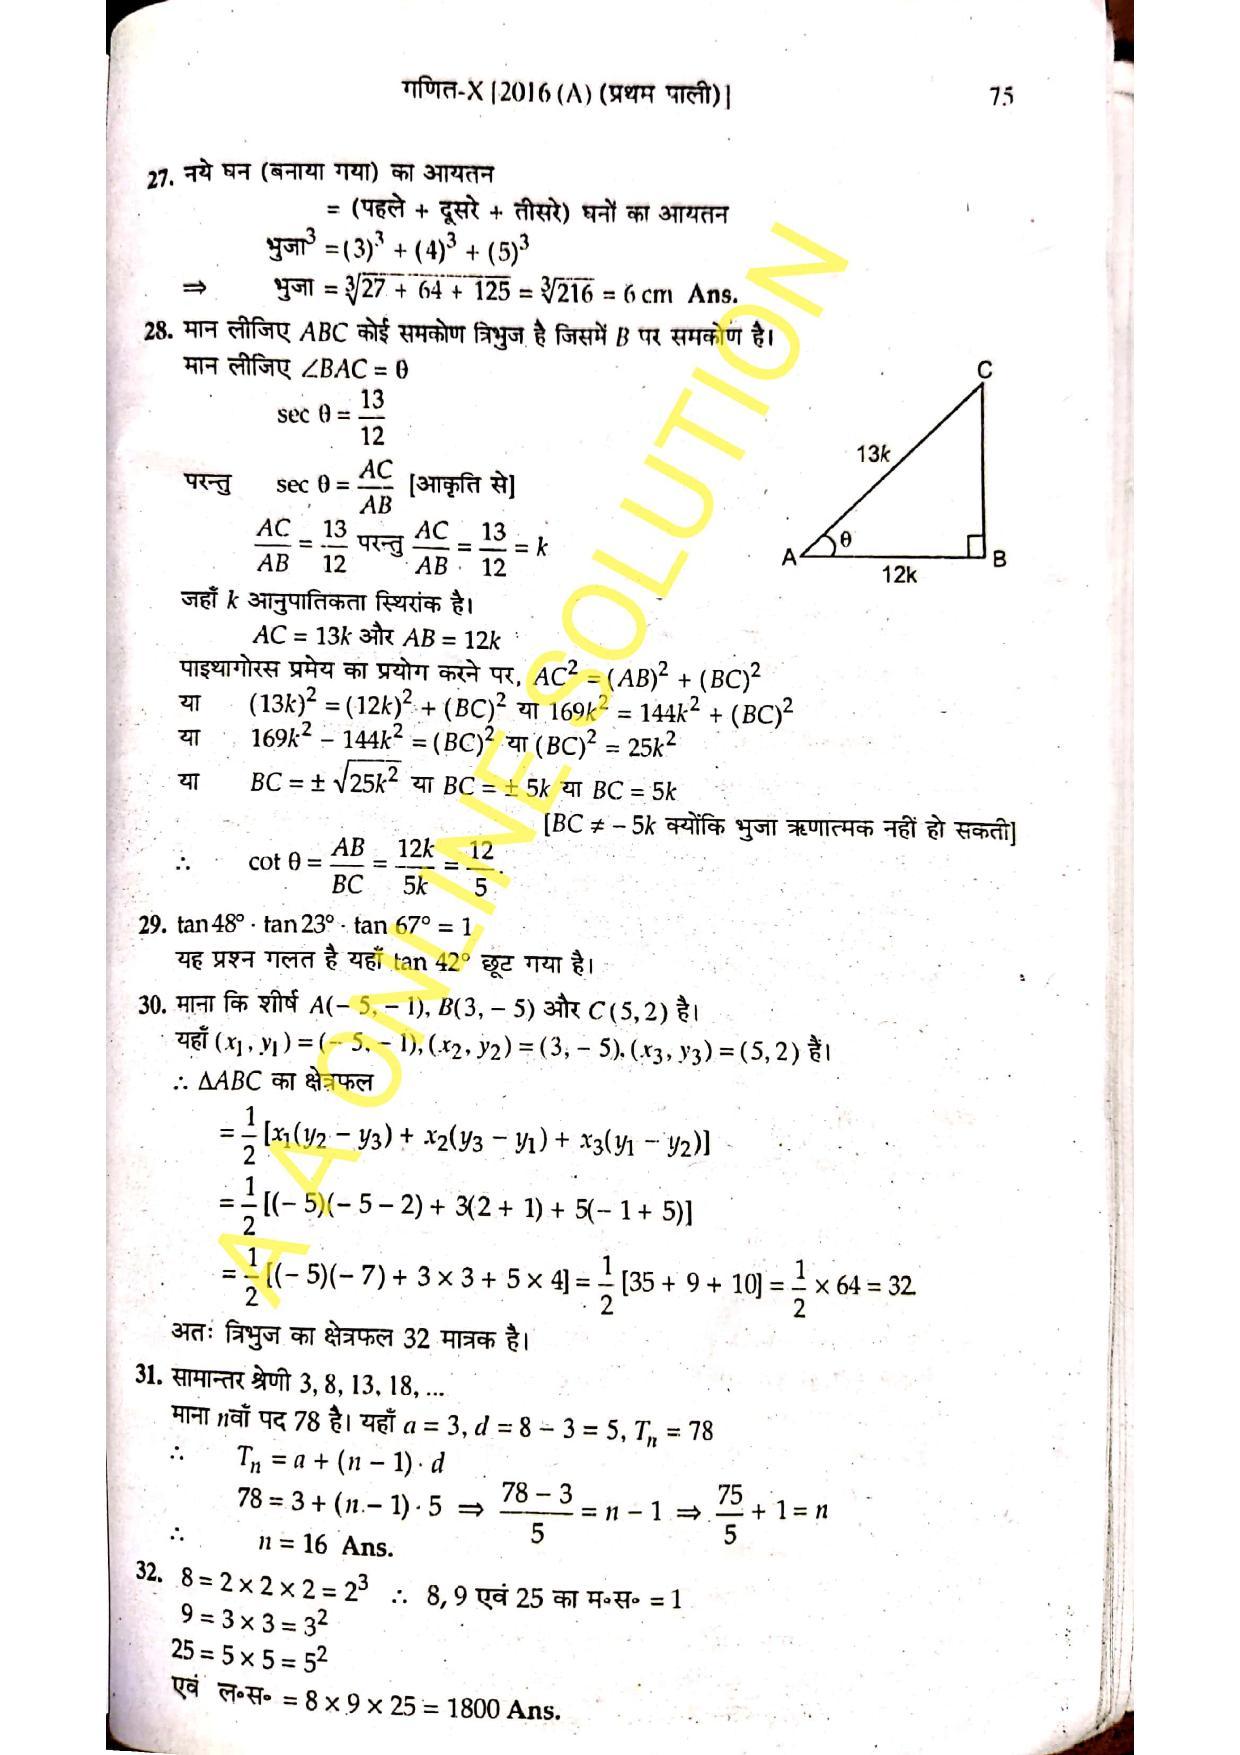 गणित-X [2016 (A) (प्रथम पाली)] 75
27. नये घन (बनाया गया) का आयतन
= (पहले + दूसरे + तीसरे) घनों का आयतन
भुजा³ = (3)³ + (4)³ + (5)³
⇒ भुजा = ∛27 + 64 + 125 = ∛216 = 6 cm Ans.
28. मान लीजिए ABC कोई समकोण त्रिभुज है जिसमें B पर समकोण है।
मान लीजिए ∠BAC = θ
sec θ = 13/12
परन्तु sec θ = AC/AB [आकृति से]
AC/AB = 13/12 परन्तु AC/AB = 13/12 = k
C
13k
A θ B
12k
जहाँ k आनुपातिकता स्थिरांक है।
AC = 13k और AB = 12k
पाइथागोरस प्रमेय का प्रयोग करने पर, AC² = (AB)² + (BC)²
या (13k)² = (12k)² + (BC)² या 169k² = 144k² + (BC)²
या 169k² – 144k² = (BC)² या (BC)² = 25k²
या BC = ± √25k² या BC = ± 5k या BC = 5k
[BC ≠ – 5k क्योंकि भुजा ऋणात्मक नहीं हो सकती]
∴ cot θ = AB/BC = 12k/5k = 12/5.
29. tan 48° · tan 23° · tan 67° = 1
यह प्रश्न गलत है यहाँ tan 42° छूट गया है।
30. माना कि शीर्ष A(– 5, – 1), B(3, – 5) और C (5, 2) है।
यहाँ (x₁, y₁) = (– 5, – 1), (x₂, y₂) = (3, – 5), (x₃, y₃) = (5, 2) हैं।
∴ ΔABC का क्षेत्रफल
= 1/2 [x₁(y₂ – y₃) + x₂(y₃ – y₁) + x₃(y₁ – y₂)]
= 1/2 [(– 5)(– 5 – 2) + 3(2 + 1) + 5(– 1 + 5)]
= 1/2 [(– 5)(– 7) + 3 × 3 + 5 × 4] = 1/2 [35 + 9 + 10] = 1/2 × 64 = 32
अतः त्रिभुज का क्षेत्रफल 32 मात्रक है।
31. सामान्तर श्रेणी 3, 8, 13, 18, ...
माना nवाँ पद 78 है। यहाँ a = 3, d = 8 – 3 = 5, Tₙ = 78
∴ Tₙ = a + (n – 1) · d
78 = 3 + (n – 1) · 5 ⇒ 78 – 3/5 = n – 1 ⇒ 75/5 + 1 = n
∴ n = 16 Ans.
32. 8 = 2 × 2 × 2 = 2³ ∴ 8, 9 एवं 25 का म॰स॰ = 1
9 = 3 × 3 = 3²
25 = 5 × 5 = 5²
एवं ल॰स॰ = 8 × 9 × 25 = 1800 Ans.
A A ONLINE SOLUTION